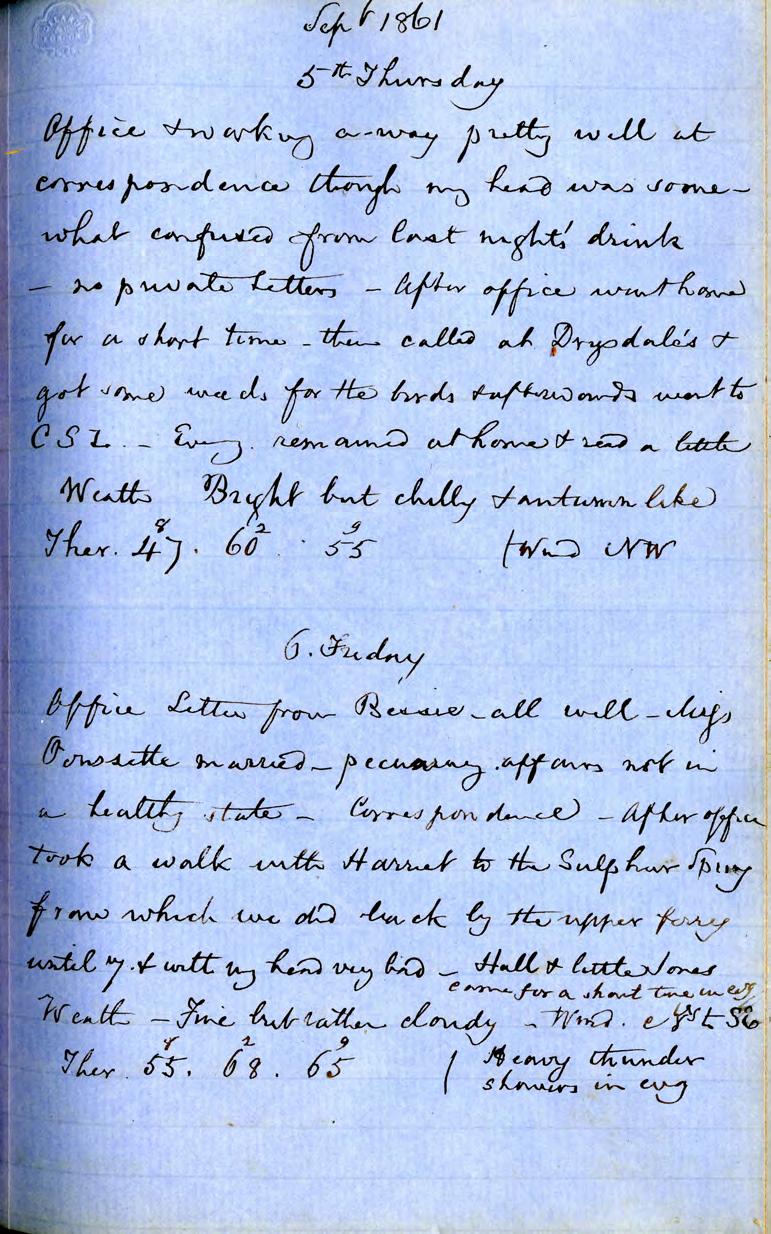 Sept 1861
5th Thursday
Office & working a-way pretty well at
correspondence though my head was some-
what confused from last night's drink
- no private letters - After office went home
for a short time - then called at Drysdale's &
got some weeds for the birds & afterwards went to
C S I. - Eveng. remained at home & read a little
Weath Bright but chilly & autumn like
Ther. 47. 60. 55 (Wind NW
8 2 9
6. Friday
Office Letter from Bessie - all well - Miss
married - pecuniary affairs not in
a healthy state - Correspondence - After office
took a walk with Harriet to the Sulphur Spring
from which we did back by the upper ferry
until 7. & with my head very bad - Hall & little Jones
came for a short time in evg
Weath - Fine but rather cloudy - Wind.
Ther 55. 68. 65 ( Heavy thunder
8 2 9
showers in evg